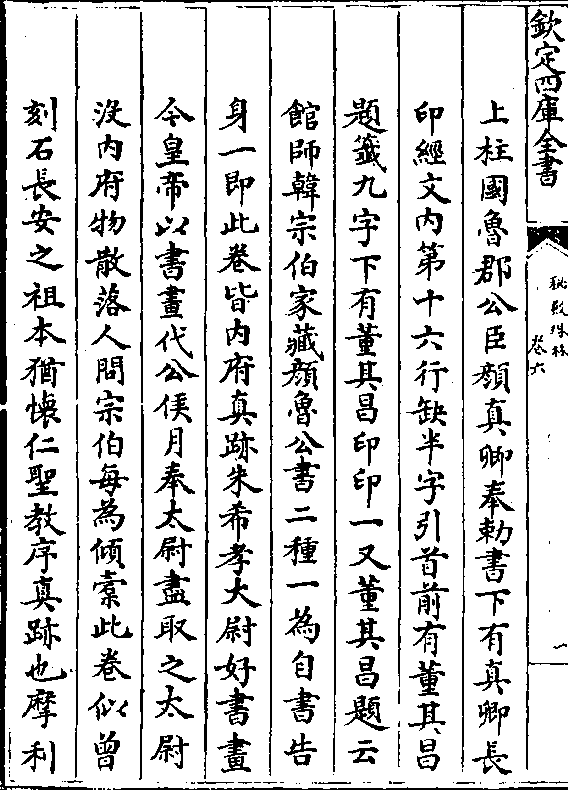 欽定四庫全書
秘殿珠林
卷六
一
上柱國魯郡公臣顔真卿奉勅書下有真卿長
印經文内第十六行缺半字引首前有董其昌
題籤九字下有董其昌印印一又董其昌題云
館師韓宗伯家藏顔魯公書二種一為自書告
身一即此卷皆内府真跡朱希孝大尉好書畫
今皇帝以書畫代公侯月奉太尉盡取之太尉
沒内府物散落人間宗伯每為傾索此卷似曾
刻石長安之祖本猶懐仁聖教序真跡也摩利